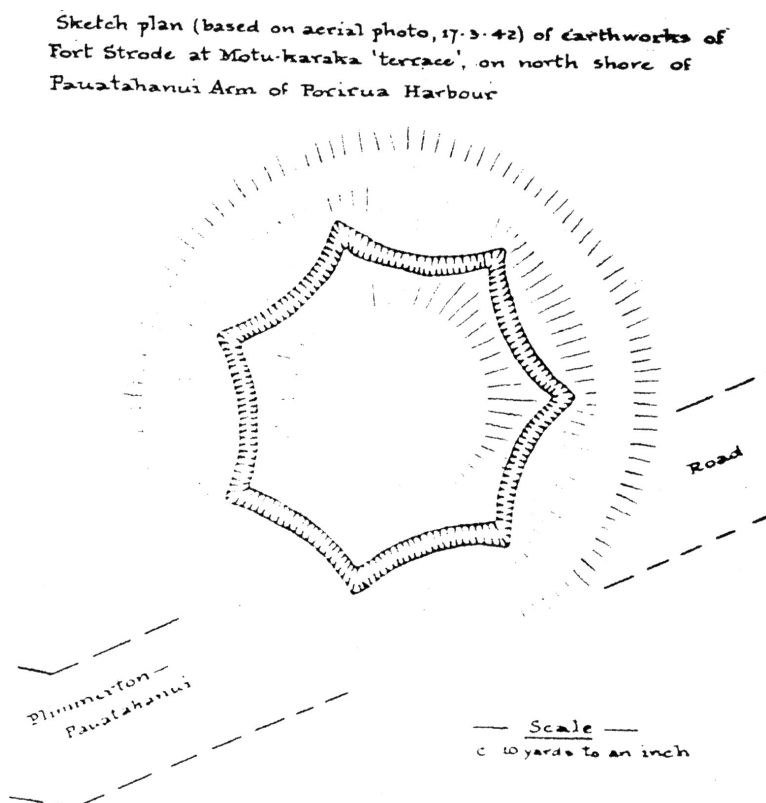 Sketch plan (based on aerial photo, 17·3·42) of Earthworks of
Fort Strode at Motu-karaka 'terrace', on north shore of
Pauatahanui Arm of Porirua Harbour
Road
Plimmerton—
Pauatahanui
— Scale —
c 10 yards to an inch